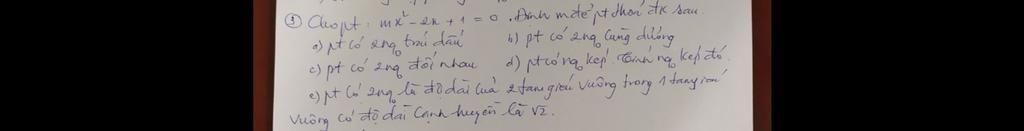 ③ Cho pt: mx² - 2x + 1 = 0. Định m để pt thoả đk sau.
a) pt có 2 ng₀ trái dấu b) pt có 2 ng₀ cùng dương
c) pt có 2 ng₀ đối nhau d) pt có ng₀ kép. Tính ng₀ kép đó.
e) pt có 2 ng₀ là độ dài của 2 tam giác vuông trong 1 tam giác
vuông có độ dài cạnh huyền là √2.